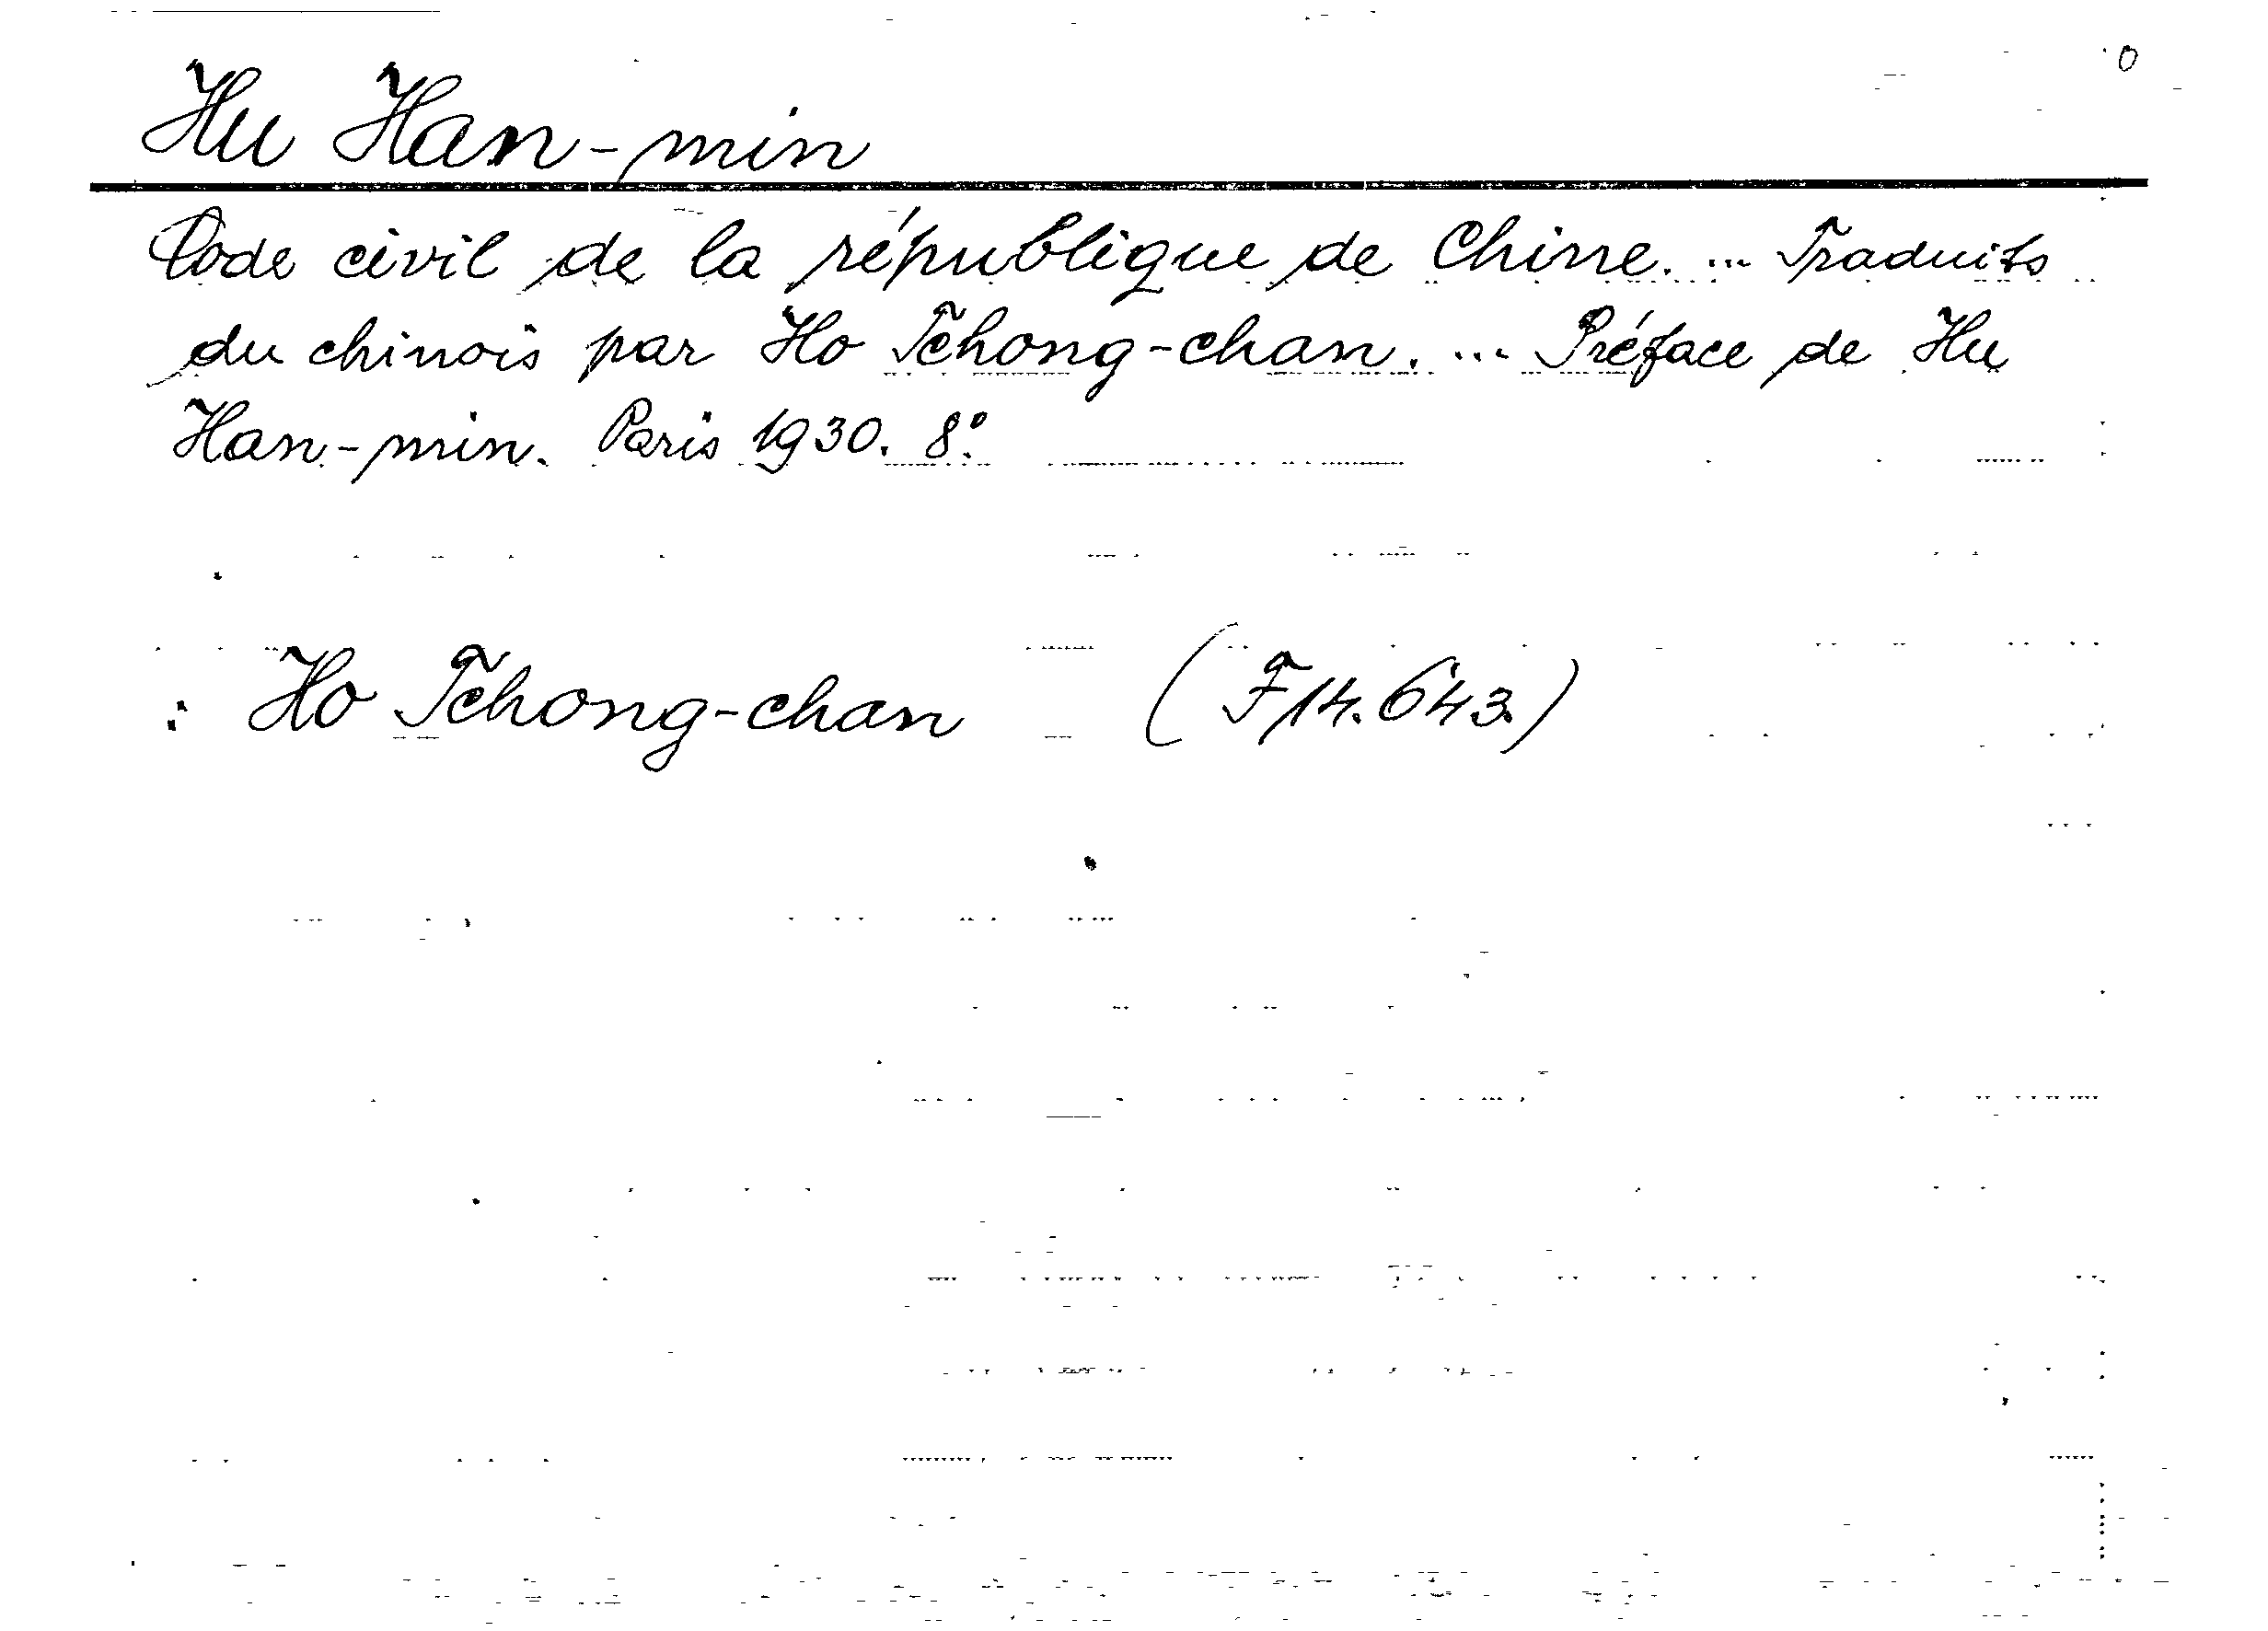 0
Hu Han-min
Code civil de la république de Chine. ... Traduits
du chinois par Ho Tchong-chan. ... Préface de Hu
Han-min. Paris 1930. 8:o
: Ho Tchong-chan (F 14.643.)